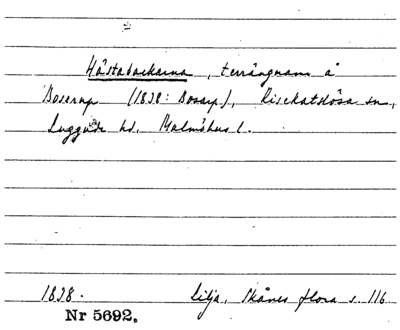 Hästabackarna, terrängnamn å
Boserup (1838: Bosarp), Risekatslösa sn,
Luggude hd. Malmöhus l.
1838. Lilja, Skånes flora s. 116
Nr 5692.